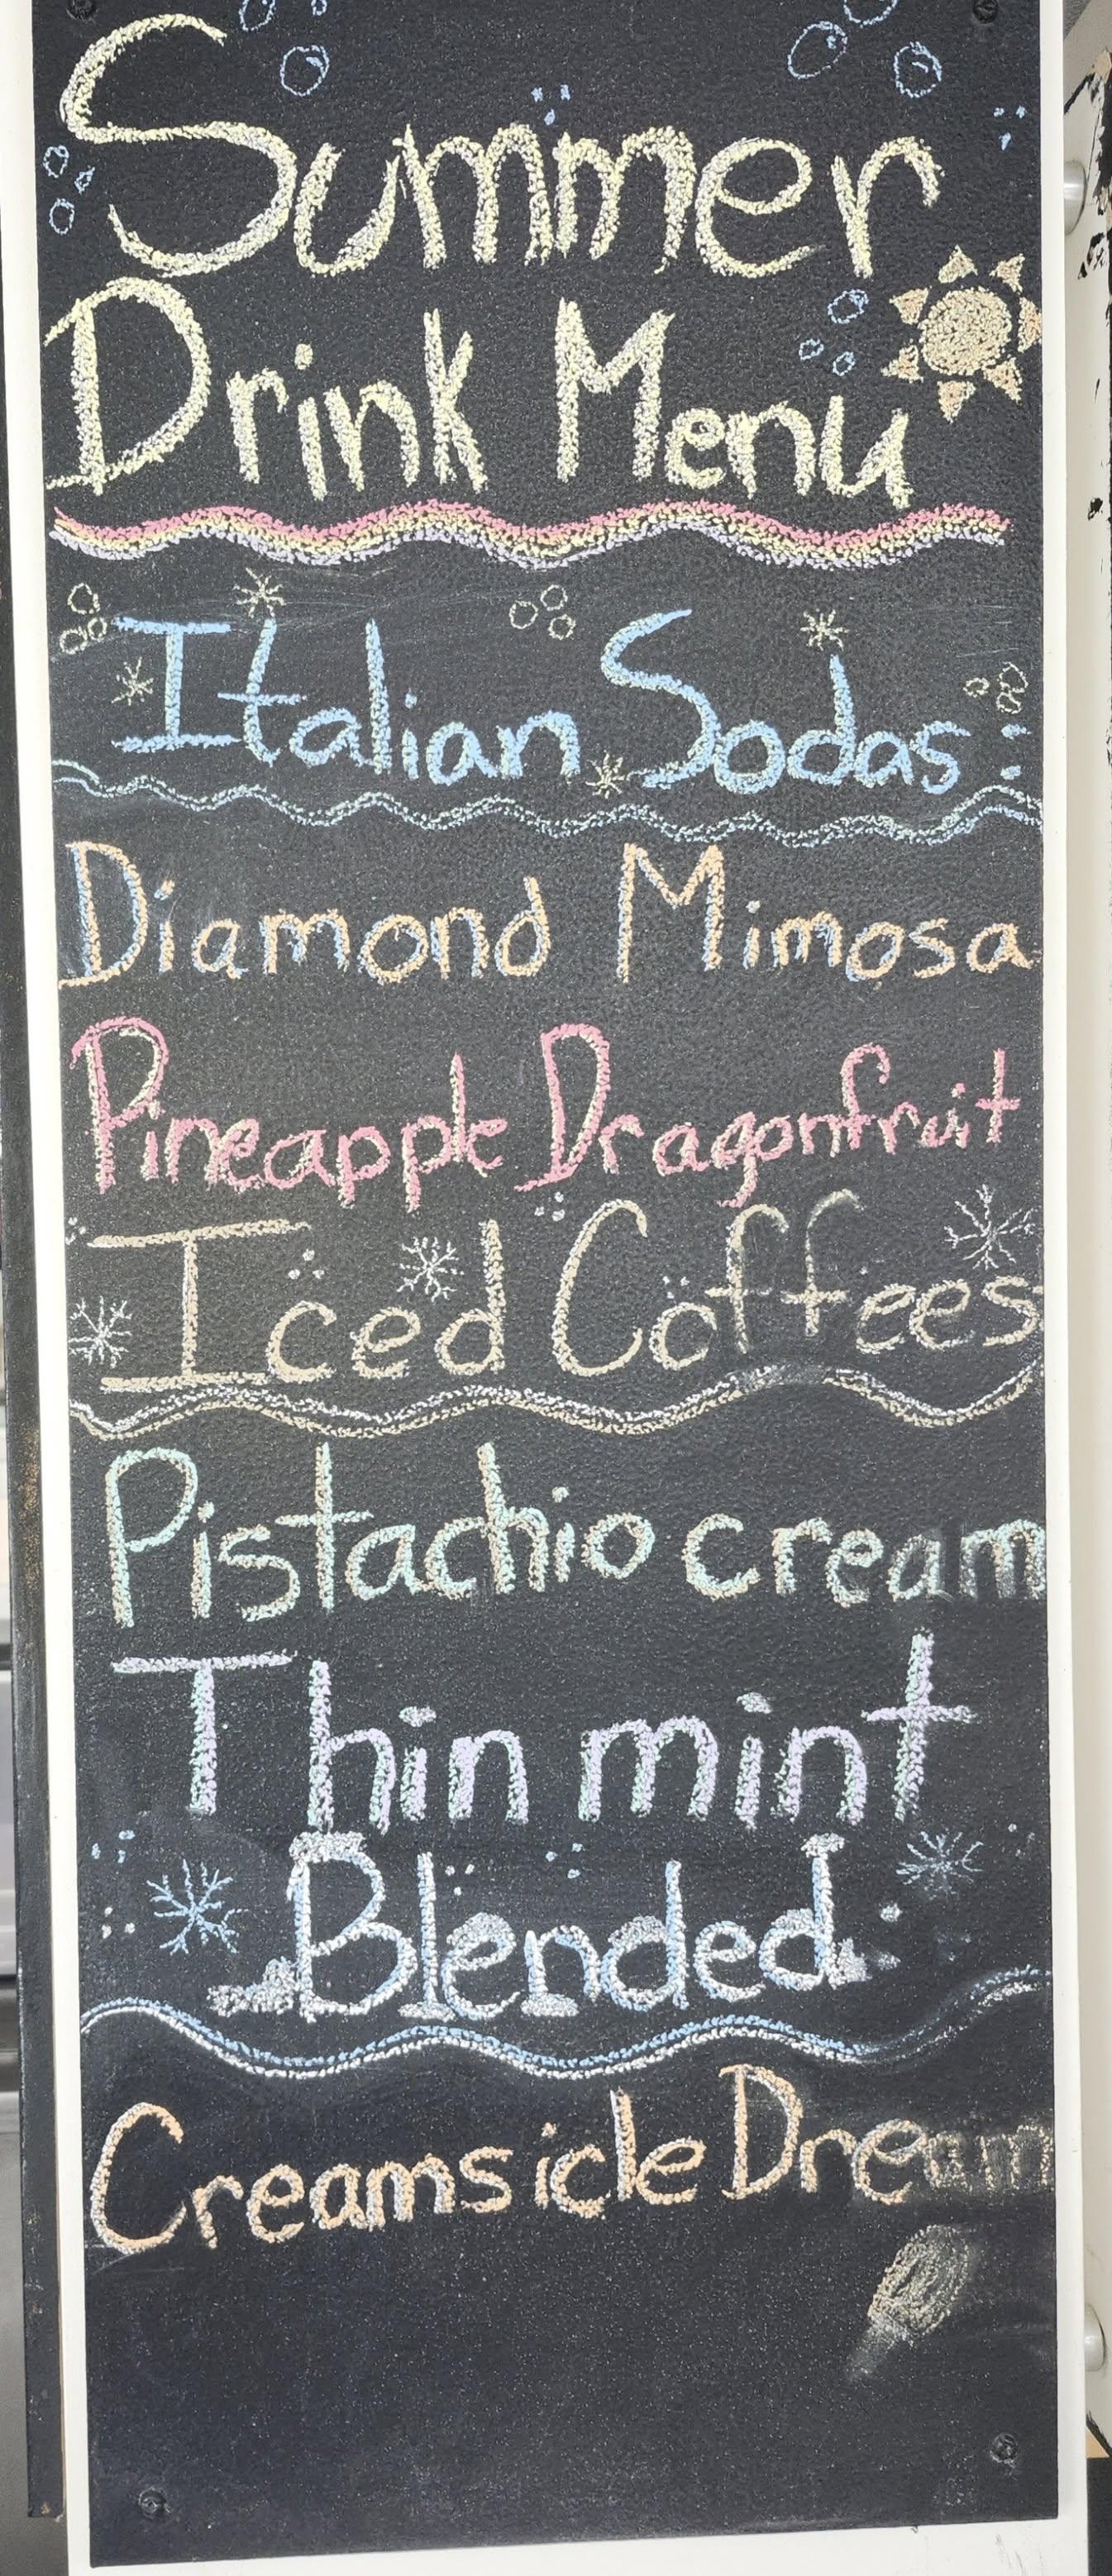 Summer
Drink Menu
Italian Sodas:
Diamond Mimosa
Pineapple Dragonfruit
Iced Coffees
Pistachio cream
Thin mint
Blended
Creamsicle Dream